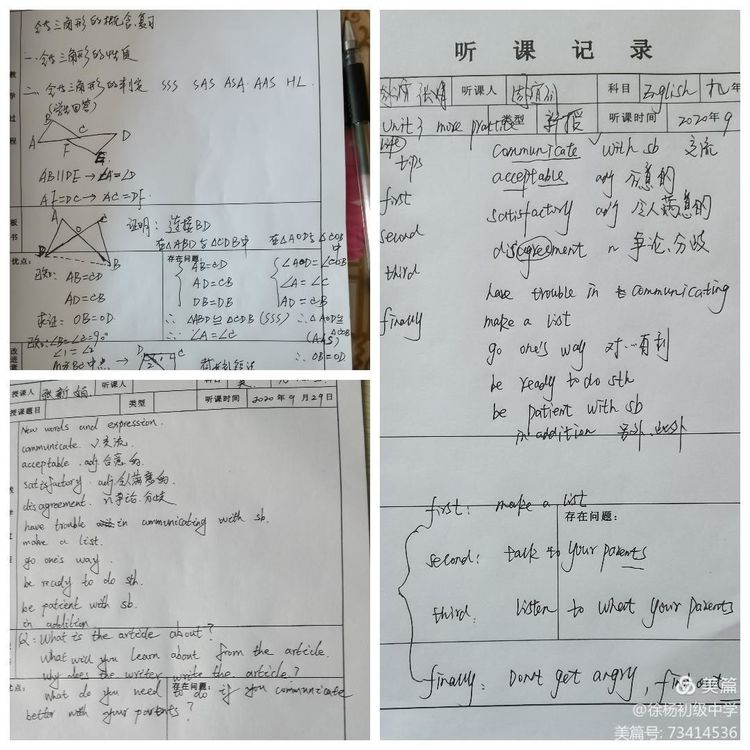 全等三角形的概念复习
一. 全等三角形的性质
二. 全等三角形的判定 SSS SAS ASA AAS HL
教学过程
B
A C D
F
E
AB∥DE → ∠A=∠D
AF=DC → AC=DF
板书
A C
O
D B
证明：连接BD
在△ABD与△CDB中
AB=CD
AD=CB
DB=DB
∴ △ABD≌△CDB (SSS)
∴ ∠A=∠C
在△AOD与△COB中
∠AOD=∠COB
∠A=∠C
AD=CB
∴ △AOD≌△COB
(AAS)
∴ OB=OD
优点：
存在问题：
已知：AB=CD
AD=CB
求证：OB=OD
∠B=∠C=90°
∠1=∠2
授课人
听课人
科目
授课题目
类型
听课时间
2020年9月29日
New words and expression.
communicate. v 交流
acceptable. adj 合意的.
satisfactory. adj. 令人满意的.
disagreement. n 争论. 分歧
have trouble in communicating with sb.
make a list.
go one's way.
be ready to do sth.
be patient with sb.
in addition
Q: What is the article about?
What will you learn about from the article.
why does the writer write the article?
what do you need to do if you communicate
better with your parents?
优点：
存在问题：
听课记录
听课人
科目
English
九年
Unit 3 more practice
类型
新授
听课时间
2020年9
life
tips
first
second
third
finally
communicate v with sb 交流
acceptable adj 合意的
satisfactory adj 令人满意的
disagreement n 争论、分歧
have trouble in communicating
make a list
go one's way 对…有利
be ready to do sth
be patient with sb
in addition 另外、此外
first: make a list
存在问题：
second: talk to your parents
third: listen to what your parents
finally: Don't get angry,
美篇
@徐杨初级中学
美篇号: 73414536